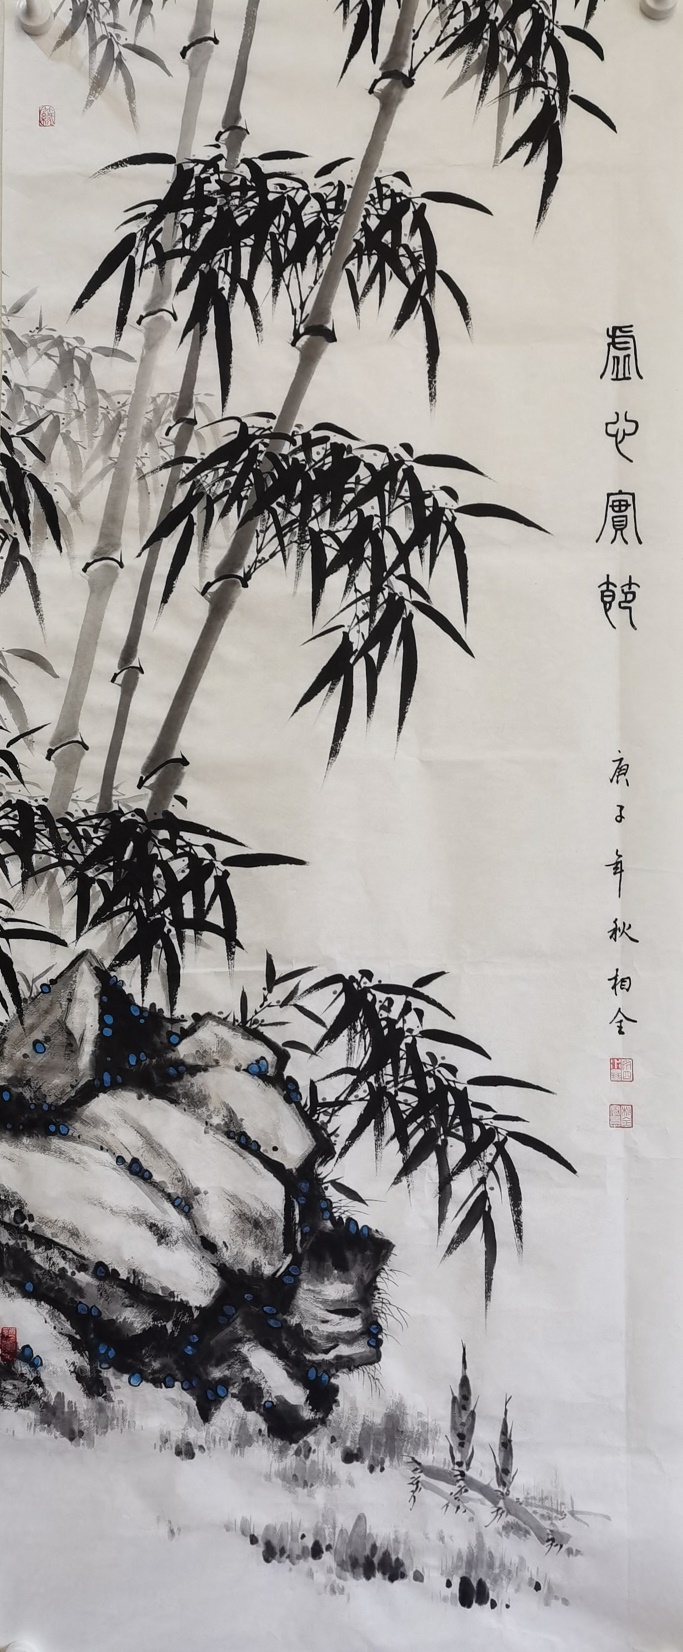 虚心實節
庚子年秋相全